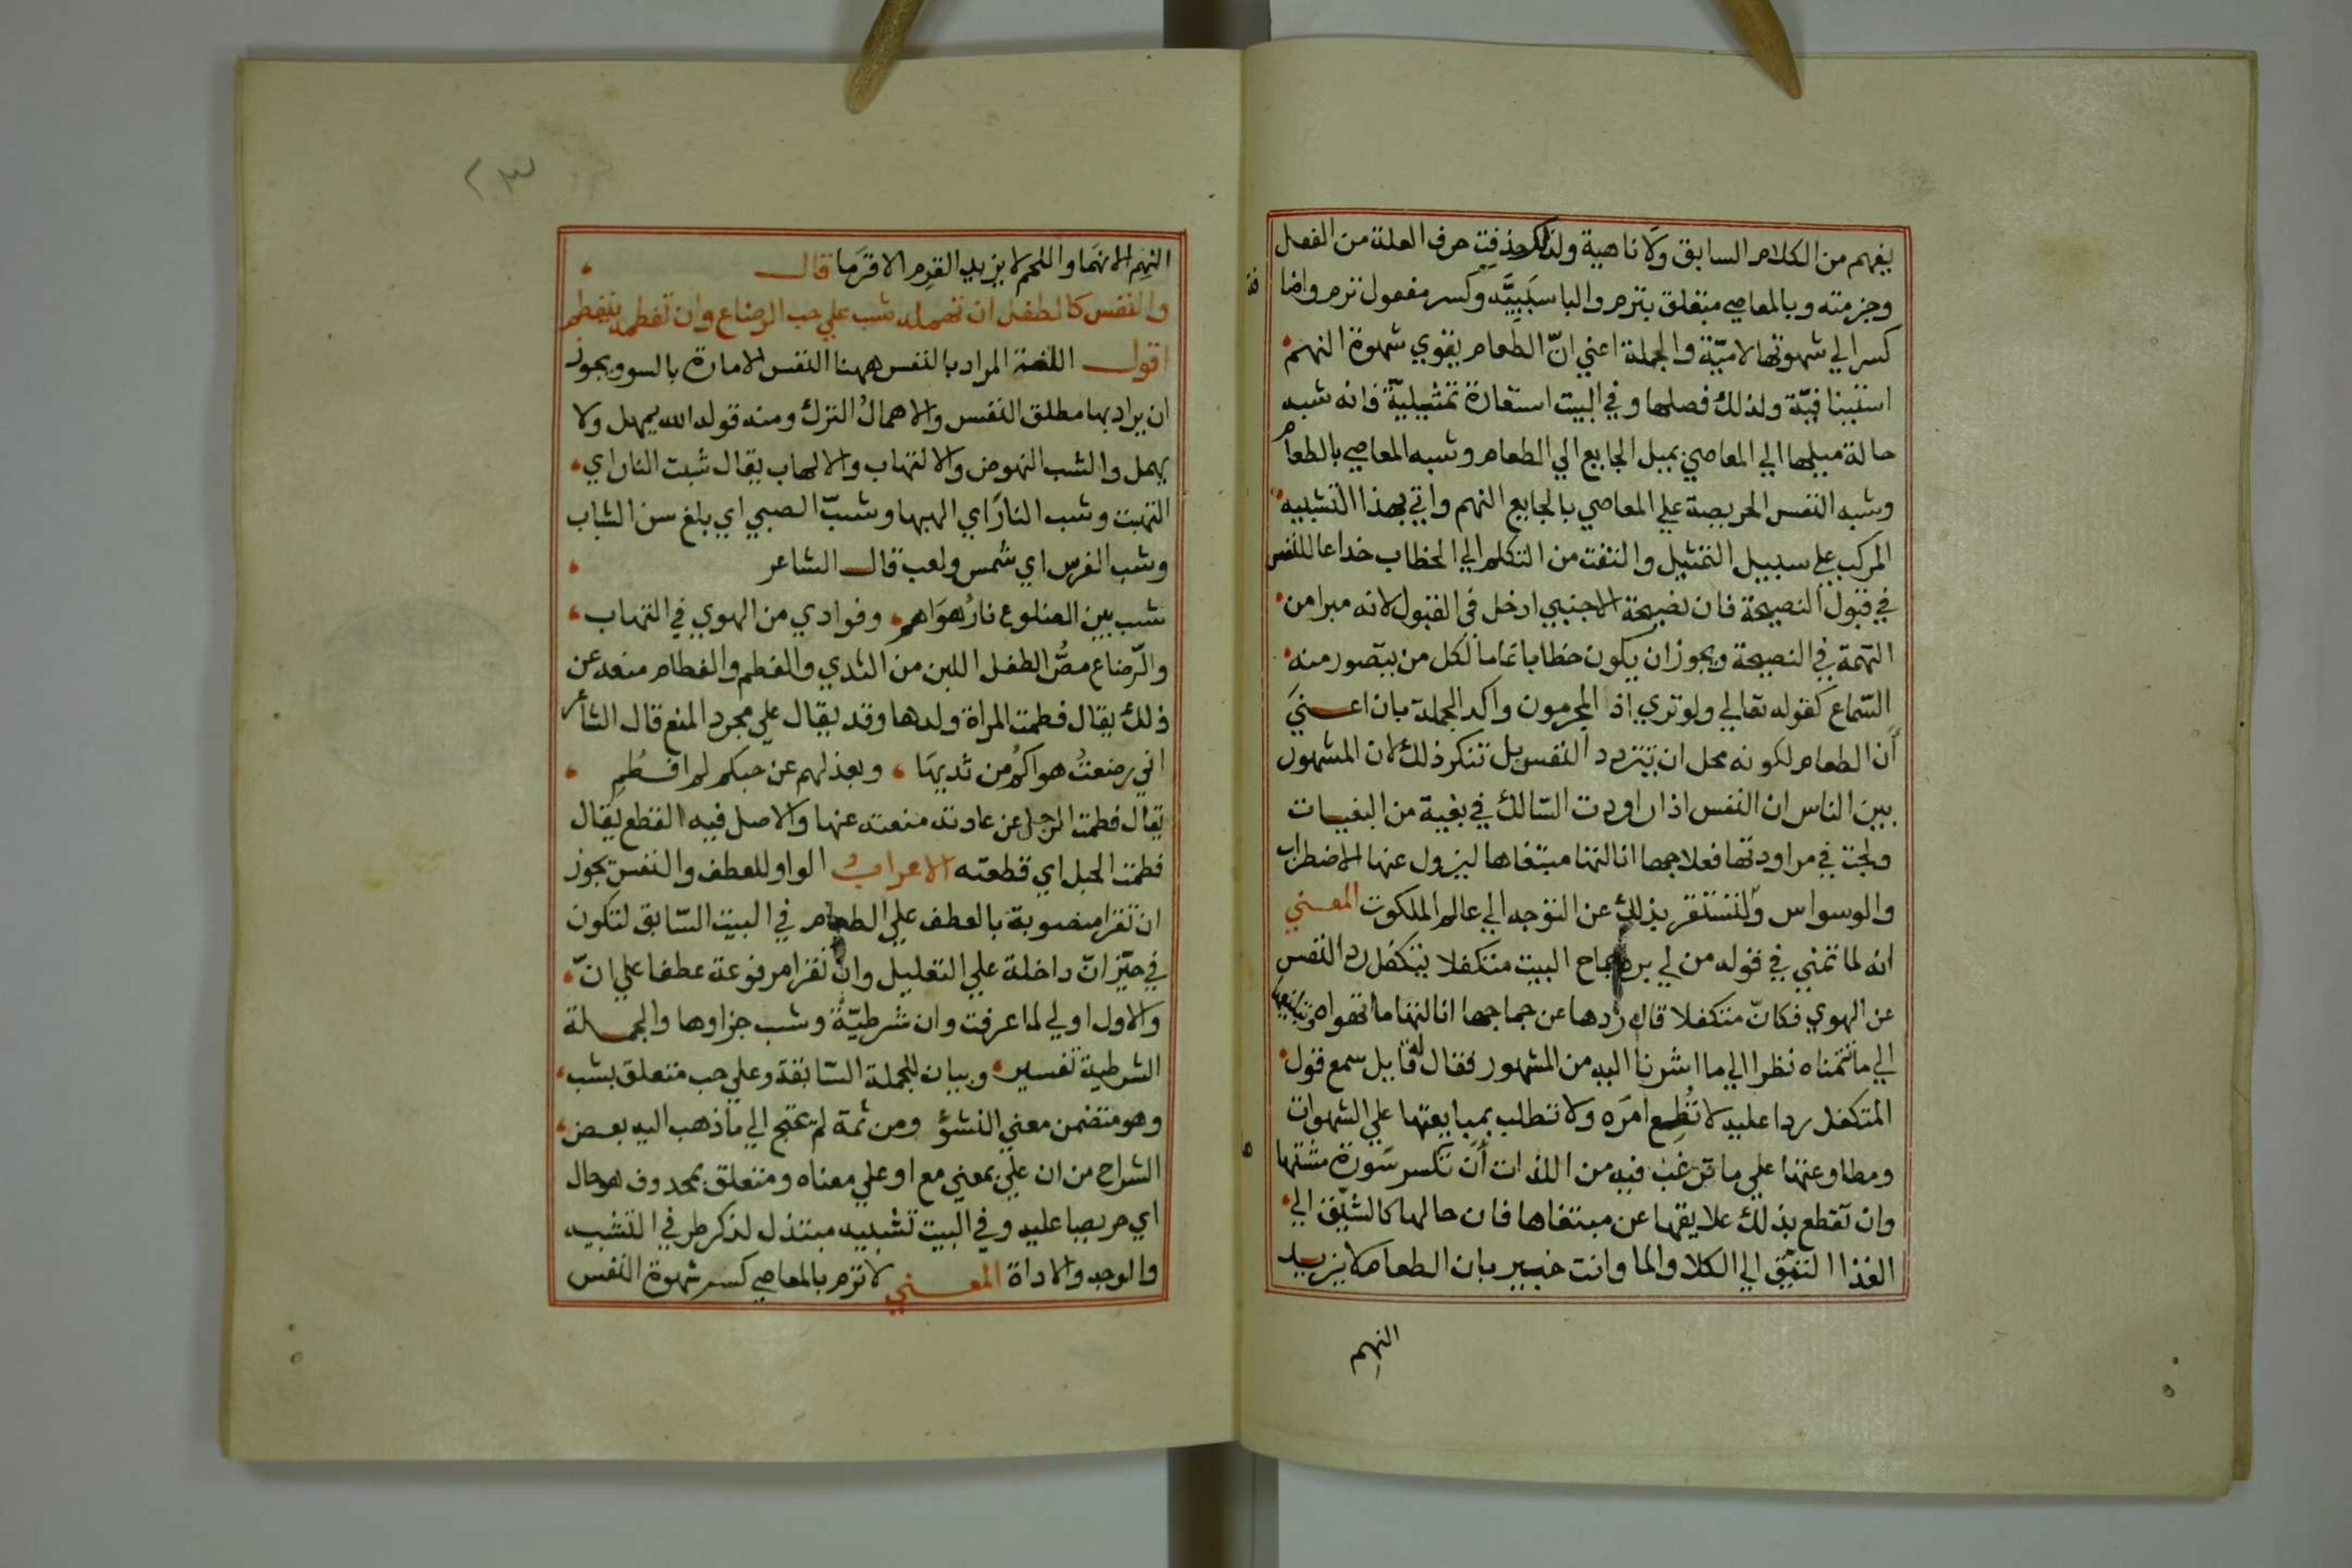 يفهم من الكلام السابق ولا ناهية ولذلك حذفت حرف العلة من الفعل
وجزمته وبالمعاصي متعلق بترم والبا سببيّه وكسر مفعول ترم واضا
فة
كسر الي شهوتها لاميّة والجملة اعني انّ الطعام يقوي شهوة النهم
استينافيّة ولذلك فصلها وفي البيت استعارة تمثيليّة فانه شبه
حالة ميلها الي المعاصي بميل الجايع الي الطعام وشبه المعاصي بالطعام
وشبه النفس الحريصة علي المعاصي بالجايع النهم واتي بهذا التشبيه
المركب علي سبيل التمثيل والتفت من التكلم الي الخطاب خداعا للنفس
في قبول النصيحة فان نصيحة الاجنبي ادخل في القبول لانه مبرا من
التهمة في النصيحة ويجوز ان يكون خطابا عاما لكل من يتصور منه
السّماع كقوله تعالي ولو تري اذ المجرمون واكد الجملة بان اعني
أن الطعام لكونه محل ان يتردد النفس بل تنكر ذلك لان المشهور
بين الناس ان النفس اذا راودت السّالك في بغية من البغيات
ولجت في مراودتها فعلاجها انالتها مبتغاها ليزول عنها الاضطراب
والوسواس ولتستقر بذلك عن التوجه الي عالم الملكوت المعني
انه لما تمني في قوله من لي برد جماح البيت متكفلا يتكفل رد النفس
عن الهوي فكانّ متكفلا قال ردها عن جماحها انالتها ما تهواه
الي ما تتمناه نظرا الي ما اشرنا اليه من المشهور فقال له قايل سمع قول
المتكفل ردا عليه لا تُطِع امرَه ولا تطلب بمبايعتها علي الشهوات
ومطاوعتها علي ما ترغب فيه من اللذات أن تكسر سَورة مشتها
ه
وان تقطع بذلك علايقها عن مبتغاها فان حالها كالشيّق الي
الغذا التيّق الي الكلا والما وانت خبير بان الطعام لا يزيد
النهم
٢٣
النهِم الا نهَما واللحم لا يزيد القرِم الا قرَما قال
والنفس كالطفل ان تهمله شب علي حب الرضاع وان تفطمه ينفطم
اقول اللغة المراد بالنفس ههنا النفس الامارة بالسو ويجوز
ان يراد بها مطلق النفس والاهمالُ الترك ومنه قوله الله يمهل ولا
يهمل والشب النهوض والالتهاب والالهاب يقال شبت النار اي
التهبت وشب النارَ اي الهبها وشبّ الصبي اي بلغ سن الشباب
وشب الفرس اي شمس ولعب قال الشاعر
شب بين الضلوع نارُ هوَاهم وفوادي من الهوي في التهاب
والرّضاع مصُّ الطفل اللبن من الثدي والفطم والفطام منعه عن
ذلك يقال فطمت المراة ولدها وقد يقال علي مجرد المنع قال الشاعر
اني رضعتُ هواكُم من ثديهَا وبعذلهم عن حبكم لم افطُم
يقال فطمت الرجل عن عادته منعته عنها والاصل فيه القطع يقال
فطمت الحبل اي قطعته الاعراب الواو للعطف والنفس يجوز
ان تقرا منصوبة بالعطف علي الطعام في البيت السّابق لتكون
في حيّز انّ داخلة علي التعليل وان تقرا مرفوعة عطفا علي انّ
والاول اولي لما عرفت وان شرطيّة وشب جزاوها والجملة
الشرطية تفسير وبيان للجملة السّابقة وعلي حب متعلق بشب
وهو متضمن معني النشؤ ومن ثمة لم يحتج الي ما ذهب اليه بعض
الشراح من ان علي بمعني مع او علي معناه ومتعلق بمحذوف هو حال
اي حريصا عليه وفي البيت تشبيه مبتذل لذكر طرفي التشبيه
والوجه والاداة المعني لا ترم بالمعاصي كسر شهوة النفس